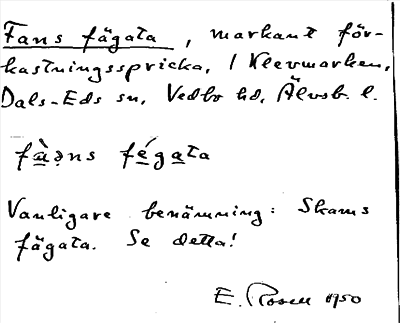 Fans fägata, markant för-
kastningsspricka, i Klevmarken,
Dals-Eds sn, Vedbo hd, Älvsb. l.
fàəns fégata
Vanligare benämning: Skams
fägata. Se detta!
E. Rosell 1950